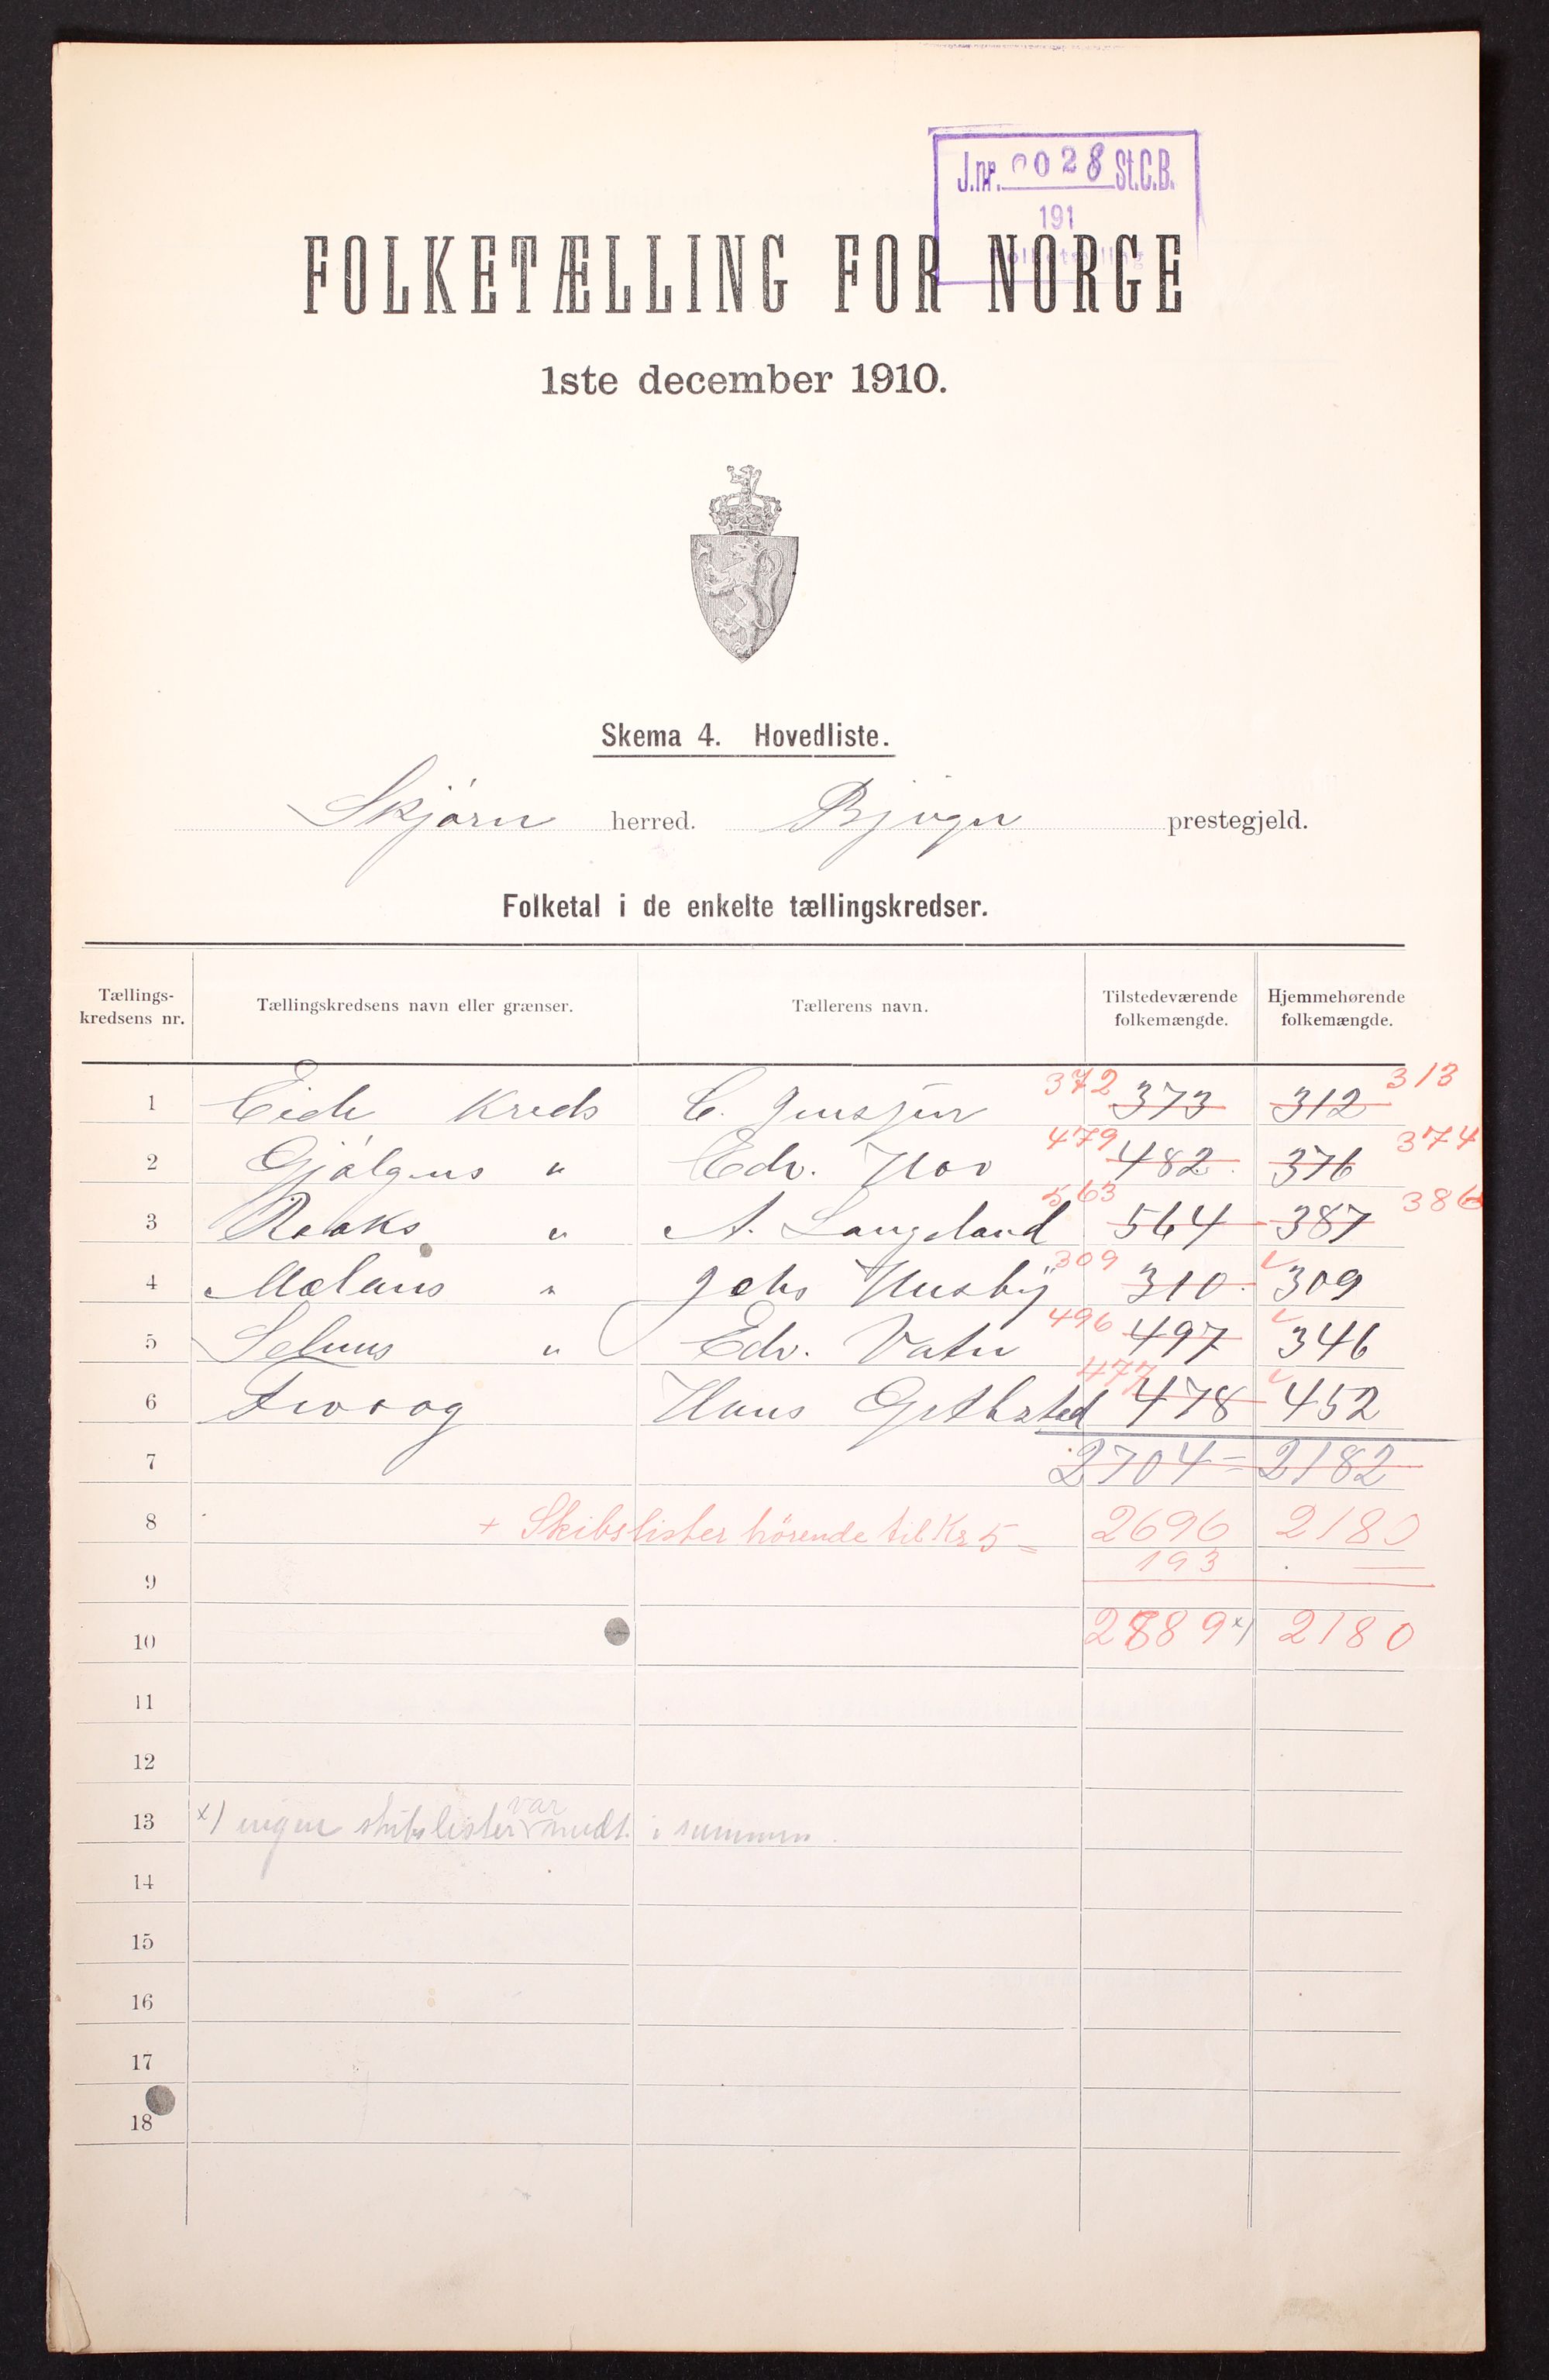 J.nr. 0028 St.C.B.
191
Folketælling
FOLKETÆLLING FOR NORGE
1ste december 1910.
Skema 4. Hovedliste.
Skjørn herred. Bjugn prestegjeld.
Folketal i de enkelte tællingskredser.
Tællings-kredsens nr. Tællingskredsens navn eller grænser. Tællerens navn. Tilstedeværende folkemængde. Hjemmehørende folkemængde.
1 Eide Kreds C. 372 373 312 313
2 Gjølgens " Edv. Hov 479 482 376 374
3 Raaks " A. Langeland 563 564 387 386
4 Mælans " Johs Husby 309 310 309
5 Selnes " Edv. Vatn 496 497 346
6 Hans 477 478 452
7 2704 = 2182
8 + Skibslister hörende til Kr 5 = 2696 2180
9 193
10 2889 x) 2180
11
12
13 x) ingen skibslister var medt. i summen.
14
15
16
17
18